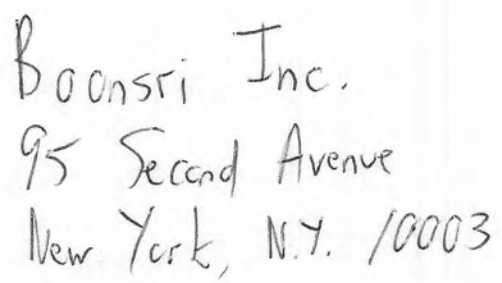 Boonsri Inc.
95 Second Avenue
New York, N.Y. 10003